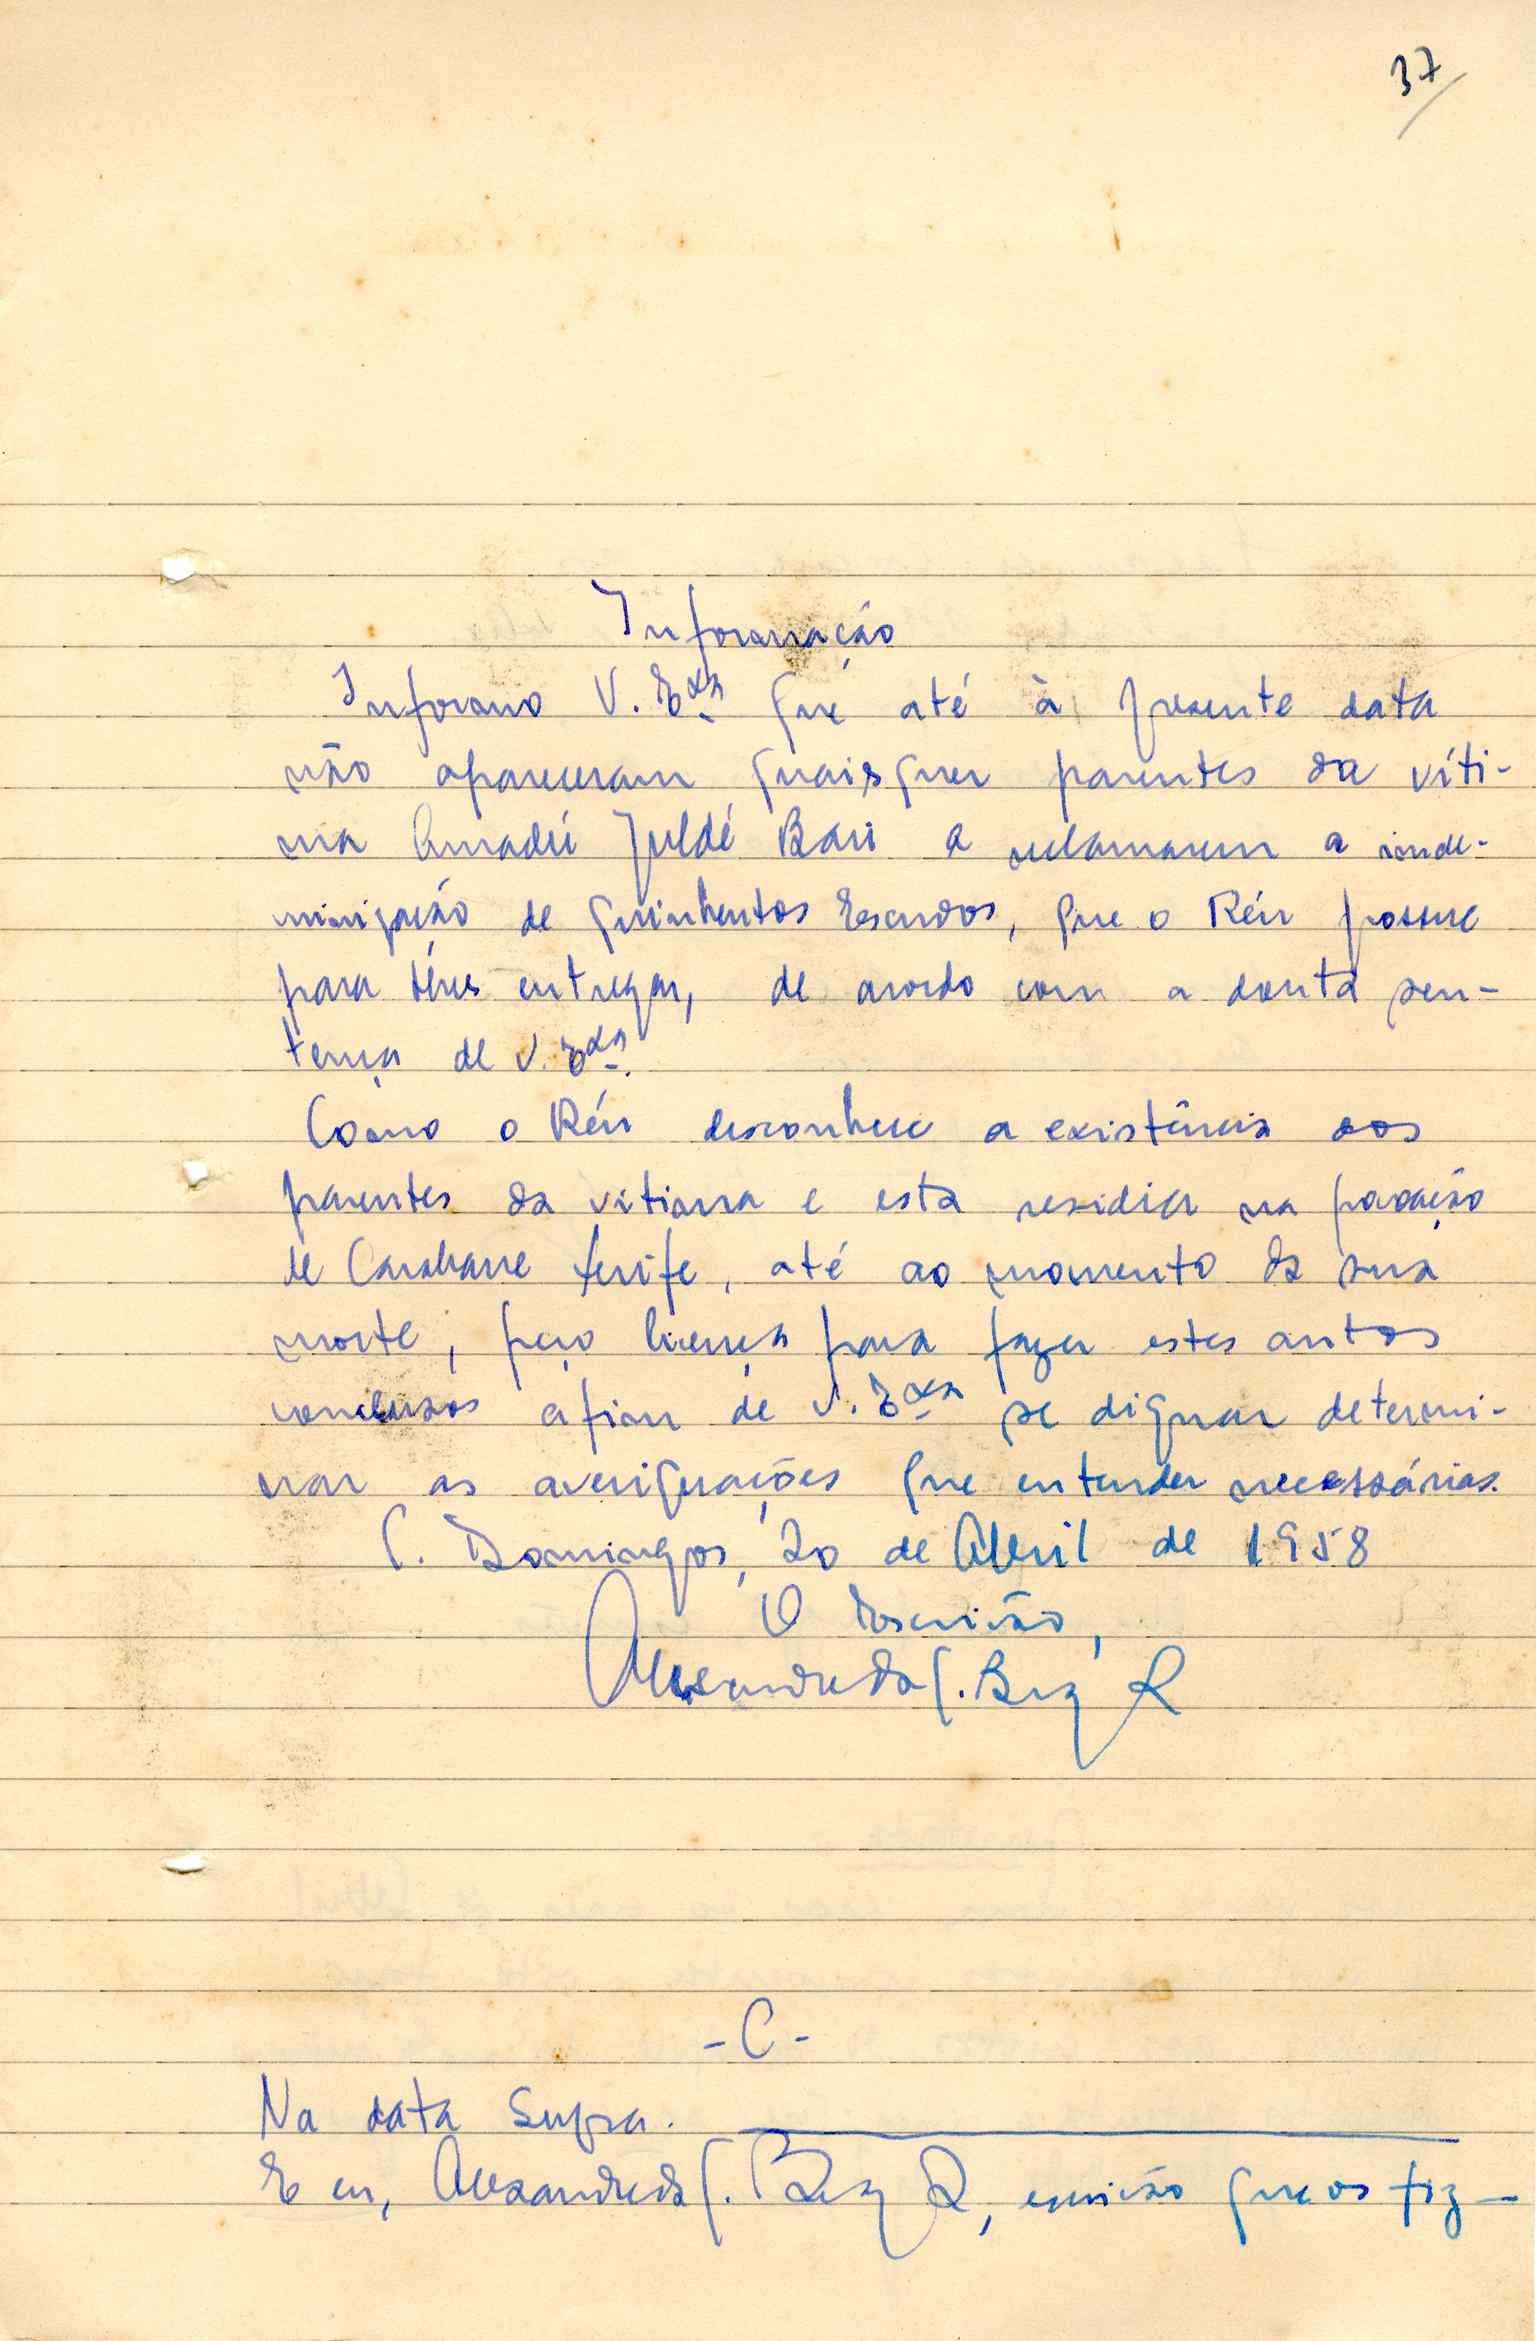 37
Informação
Informo V. Exª que até à presente data
não apareceram quaisquer parentes da víti-
ma Amadú Juldé Bari a reclamarem a inde-
minização de quinhentos Escudos, que o Réu possue
para lhes entregar, de acordo com a douta sen-
tença de V. Exª.
Como o Réu desconhece a existência dos
parentes da vitima e esta residia na povoação
de, até ao momento da sua
morte, peço licença para fazer estes autos
conclusos afim de V. Exª se dignar determi-
nar as averiguações que entender necessárias.
S. Domingos, 20 de Abril de 1958
O Escrivão,
Alexandre da S.
- C -
Na data supra.
E eu, Alexandre da S., escrivão que os fiz —